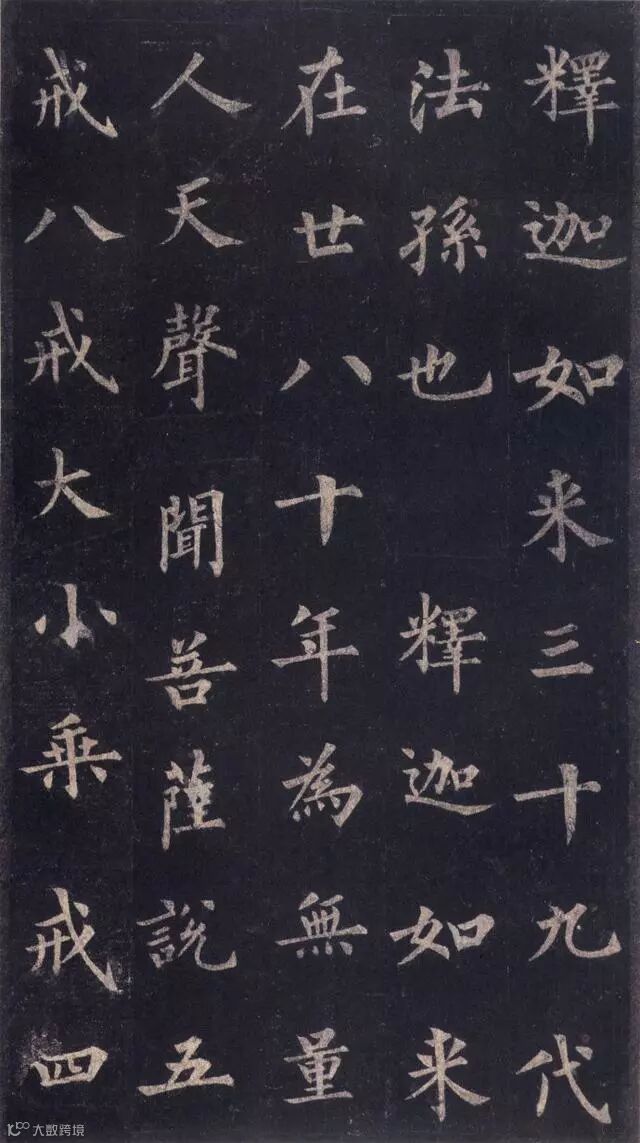 釋迦如来三十九代
法孫也 釋迦如来
在世八十年為無量
人天聲聞菩薩說五
戒八戒大小乗戒四
大数跨境